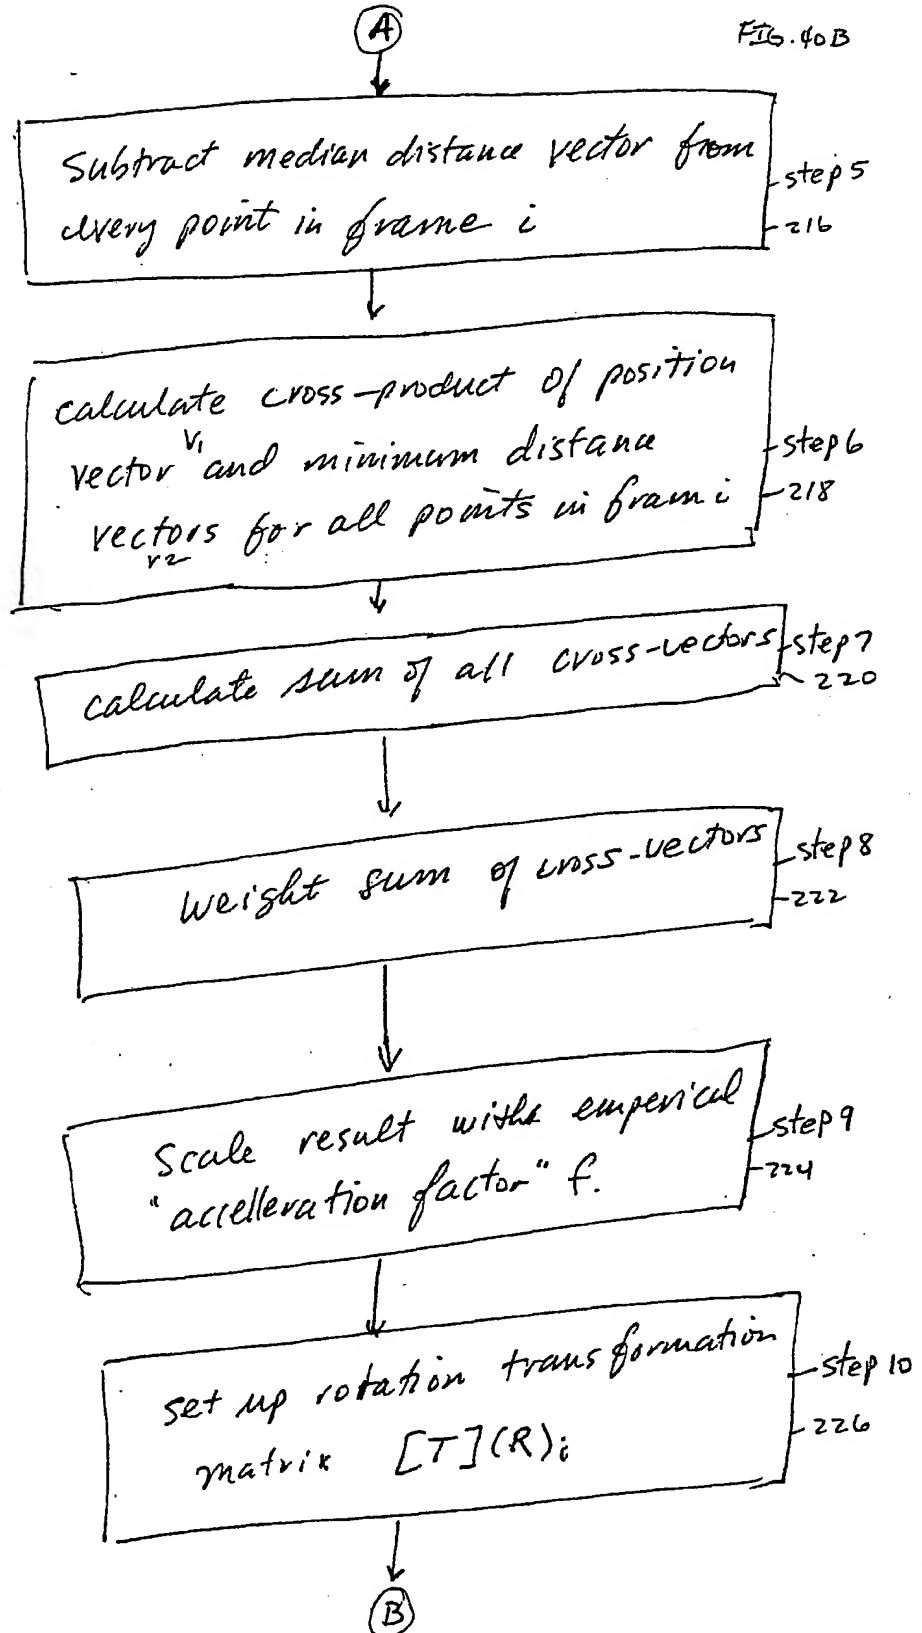 A
FIG. 40B
Subtract median distance vector from
every point in frame i
step 5
216
calculate cross-product of position
vector V1 and minimum distance
vectors for all points in fram i
V2
step 6
218
calculate sum of all cross-vectors
step 7
220
Weight sum of cross-vectors
step 8
222
Scale result with emperical
"accelleration factor" f.
step 9
224
set up rotation transformation
matrix [T](R)i
step 10
226
B